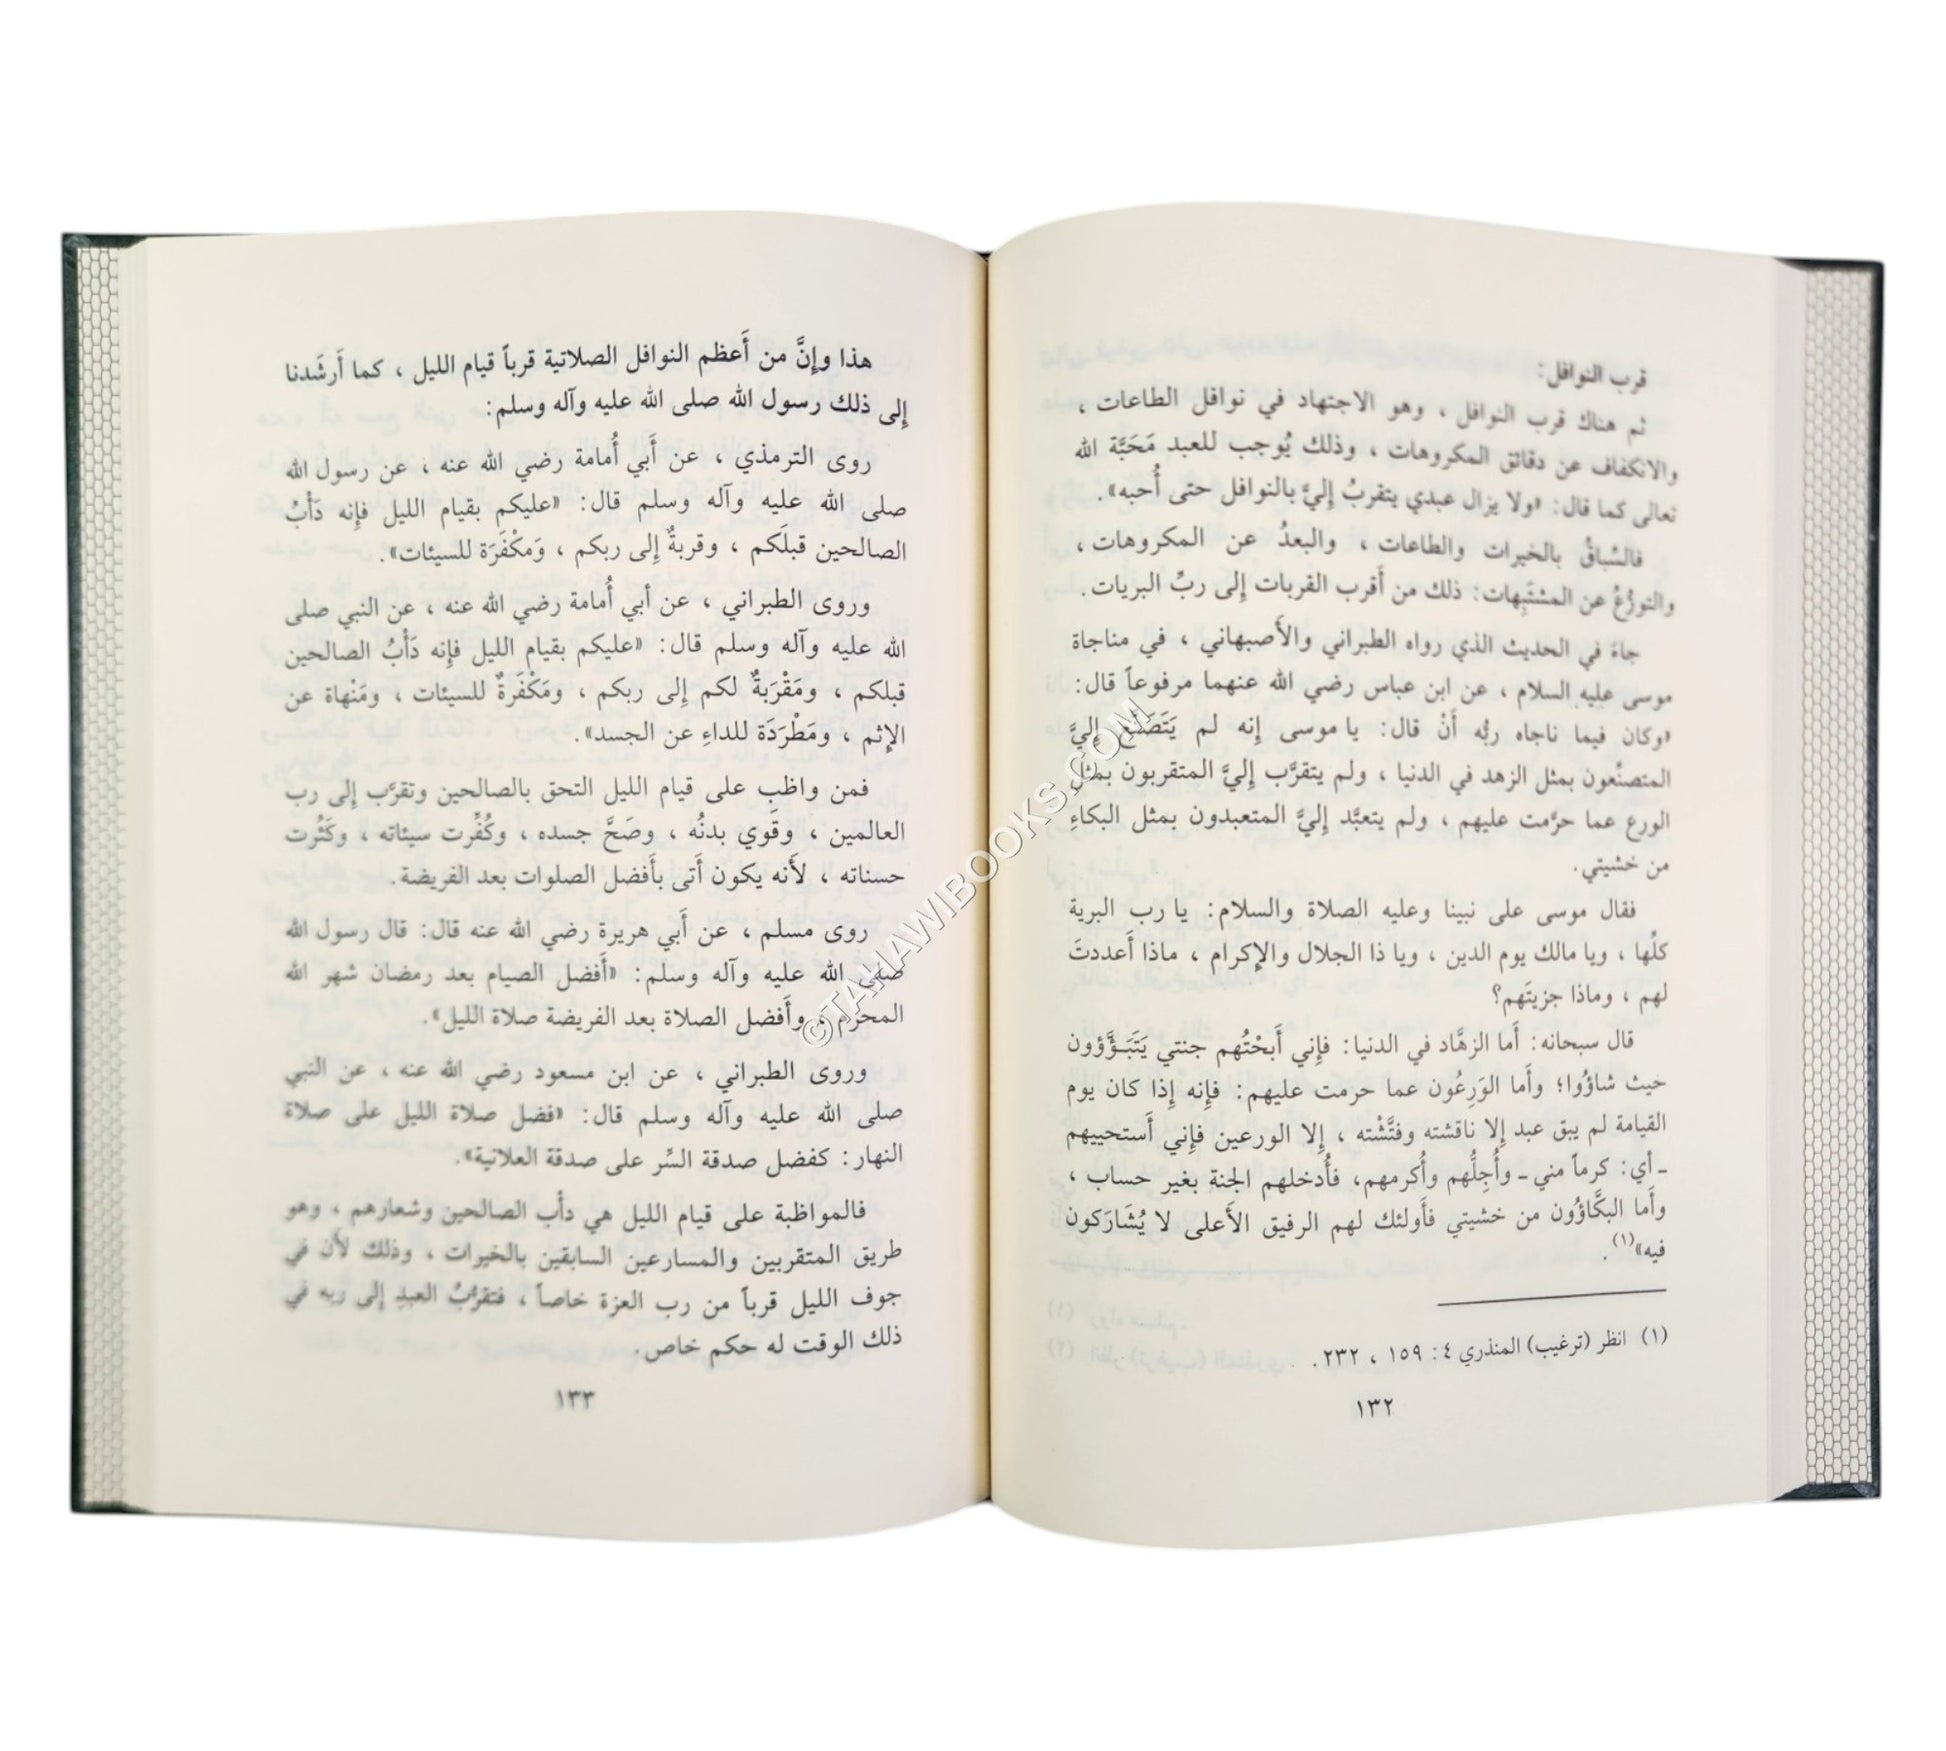 قرب النوافل:
ثم هناك قرب النوافل ، وهو الاجتهاد في نوافل الطاعات ،
والانكفاف عن دقائق المكروهات ، وذلك يُوجب للعبد مَحَبَّة الله
تعالى كما قال: «ولا يزال عبدي يتقربُ إليَّ بالنوافل حتى أُحبه».
فالسِّباقُ بالخيرات والطاعات ، والبعدُ عن المكروهات ،
والتورُّعُ عن المشتَبِهات: ذلك من أَقرب القربات إلى ربِّ البريات.
جاءَ في الحديث الذي رواه الطبراني والأَصبهاني ، في مناجاة
موسى عليه السلام ، عن ابن عباس رضي الله عنهما مرفوعاً قال:
«وكان فيما ناجاه ربُّه أَنْ قال: يا موسى إنه لم يَتَصَنَّع إليَّ
المتصنِّعون بمثل الزهد في الدنيا ، ولم يتقرَّب إليَّ المتقربون بمثل
الورع عما حرَّمت عليهم ، ولم يتعبَّد إليَّ المتعبدون بمثل البكاءِ
من خشيتي.
فقال موسى على نبينا وعليه الصلاة والسلام: يا رب البرية
كلِّها ، ويا مالك يوم الدين ، ويا ذا الجلال والإكرام ، ماذا أَعددتَ
لهم ، وماذا جزيتَهم؟
قال سبحانه: أَما الزهَّاد في الدنيا: فإني أَبحْتُهم جنتي يَتَبَوَّؤون
حيث شاؤُوا؛ وأَما الوَرِعُون عما حرمت عليهم: فإنه إذا كان يوم
القيامة لم يبق عبد إلا ناقشته وفتَّشْته ، إلا الورعين فإني أَستحييهم
ـ أي: كرماً مني ـ وأُجِلُّهم وأُكرمهم، فأُدخلهم الجنة بغير حساب ،
وأَما البكَّاؤُون من خشيتي فأَولئك لهم الرفيق الأَعلى لا يُشَارَكون
فيه»(١).
(١) انظر (ترغيب) المنذري ٤: ١٥٩ ، ٢٣٢.
١٣٢
هذا وإنَّ من أَعظم النوافل الصلاتية قرباً قيام الليل ، كما أَرشَدنا
إلى ذلك رسول الله صلى الله عليه وآله وسلم:
روى الترمذي ، عن أَبي أُمامة رضي الله عنه ، عن رسول الله
صلى الله عليه وآله وسلم قال: «عليكم بقيام الليل فإنه دَأْبُ
الصالحين قبلَكم ، وقربةٌ إلى ربكم ، وَمكْفَرَة للسيئات».
وروى الطبراني ، عن أبي أُمامة رضي الله عنه ، عن النبي صلى
الله عليه وآله وسلم قال: «عليكم بقيام الليل فإنه دَأْبُ الصالحين
قبلكم ، ومَقْرَبةٌ لكم إلى ربكم ، ومَكْفَرةٌ للسيئات ، ومَنْهاة عن
الإثم ، ومَطْرَدَة للداءِ عن الجسد».
فمن واظب على قيام الليل التحق بالصالحين وتقرَّب إلى رب
العالمين ، وقَوي بدنُه ، وصَحَّ جسده ، وكُفِّرت سيئاته ، وكَثُرت
حسناته ، لأَنه يكون أَتى بأَفضل الصلوات بعد الفريضة.
روى مسلم ، عن أَبي هريرة رضي الله عنه قال: قال رسول الله
صلى الله عليه وآله وسلم: «أَفضل الصيام بعد رمضان شهر الله
المحرم ، وأَفضل الصلاة بعد الفريضة صلاة الليل».
وروى الطبراني ، عن ابن مسعود رضي الله عنه ، عن النبي
صلى الله عليه وآله وسلم قال: «فضل صلاة الليل على صلاة
النهار: كفضل صدقة السِّر على صدقة العلانية».
فالمواظبة على قيام الليل هي دأْب الصالحين وشعارهم ، وهو
طريق المتقربين والمسارعين السابقين بالخيرات ، وذلك لأَن في
جوف الليل قرباً من رب العزة خاصاً ، فتقرُّبُ العبدِ إلى ربه في
ذلك الوقت له حكم خاص.
١٣٣
©TAHAWIBOOKS.COM